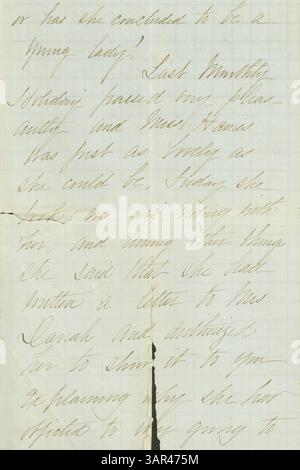 or has she concluded to be a
young lady?
Last Monthly
Holiday passed very pleas-
antly and Miss Hanes
was just as lovely as
she could be. Friday she
took us out riding with
her, and among other things
she said that she had
written a letter to Mrs
Darrah and authorized
her to show it to you
explaining why she has
objected to my going to
alamy
Image ID: 3AR475M
www.alamy.com